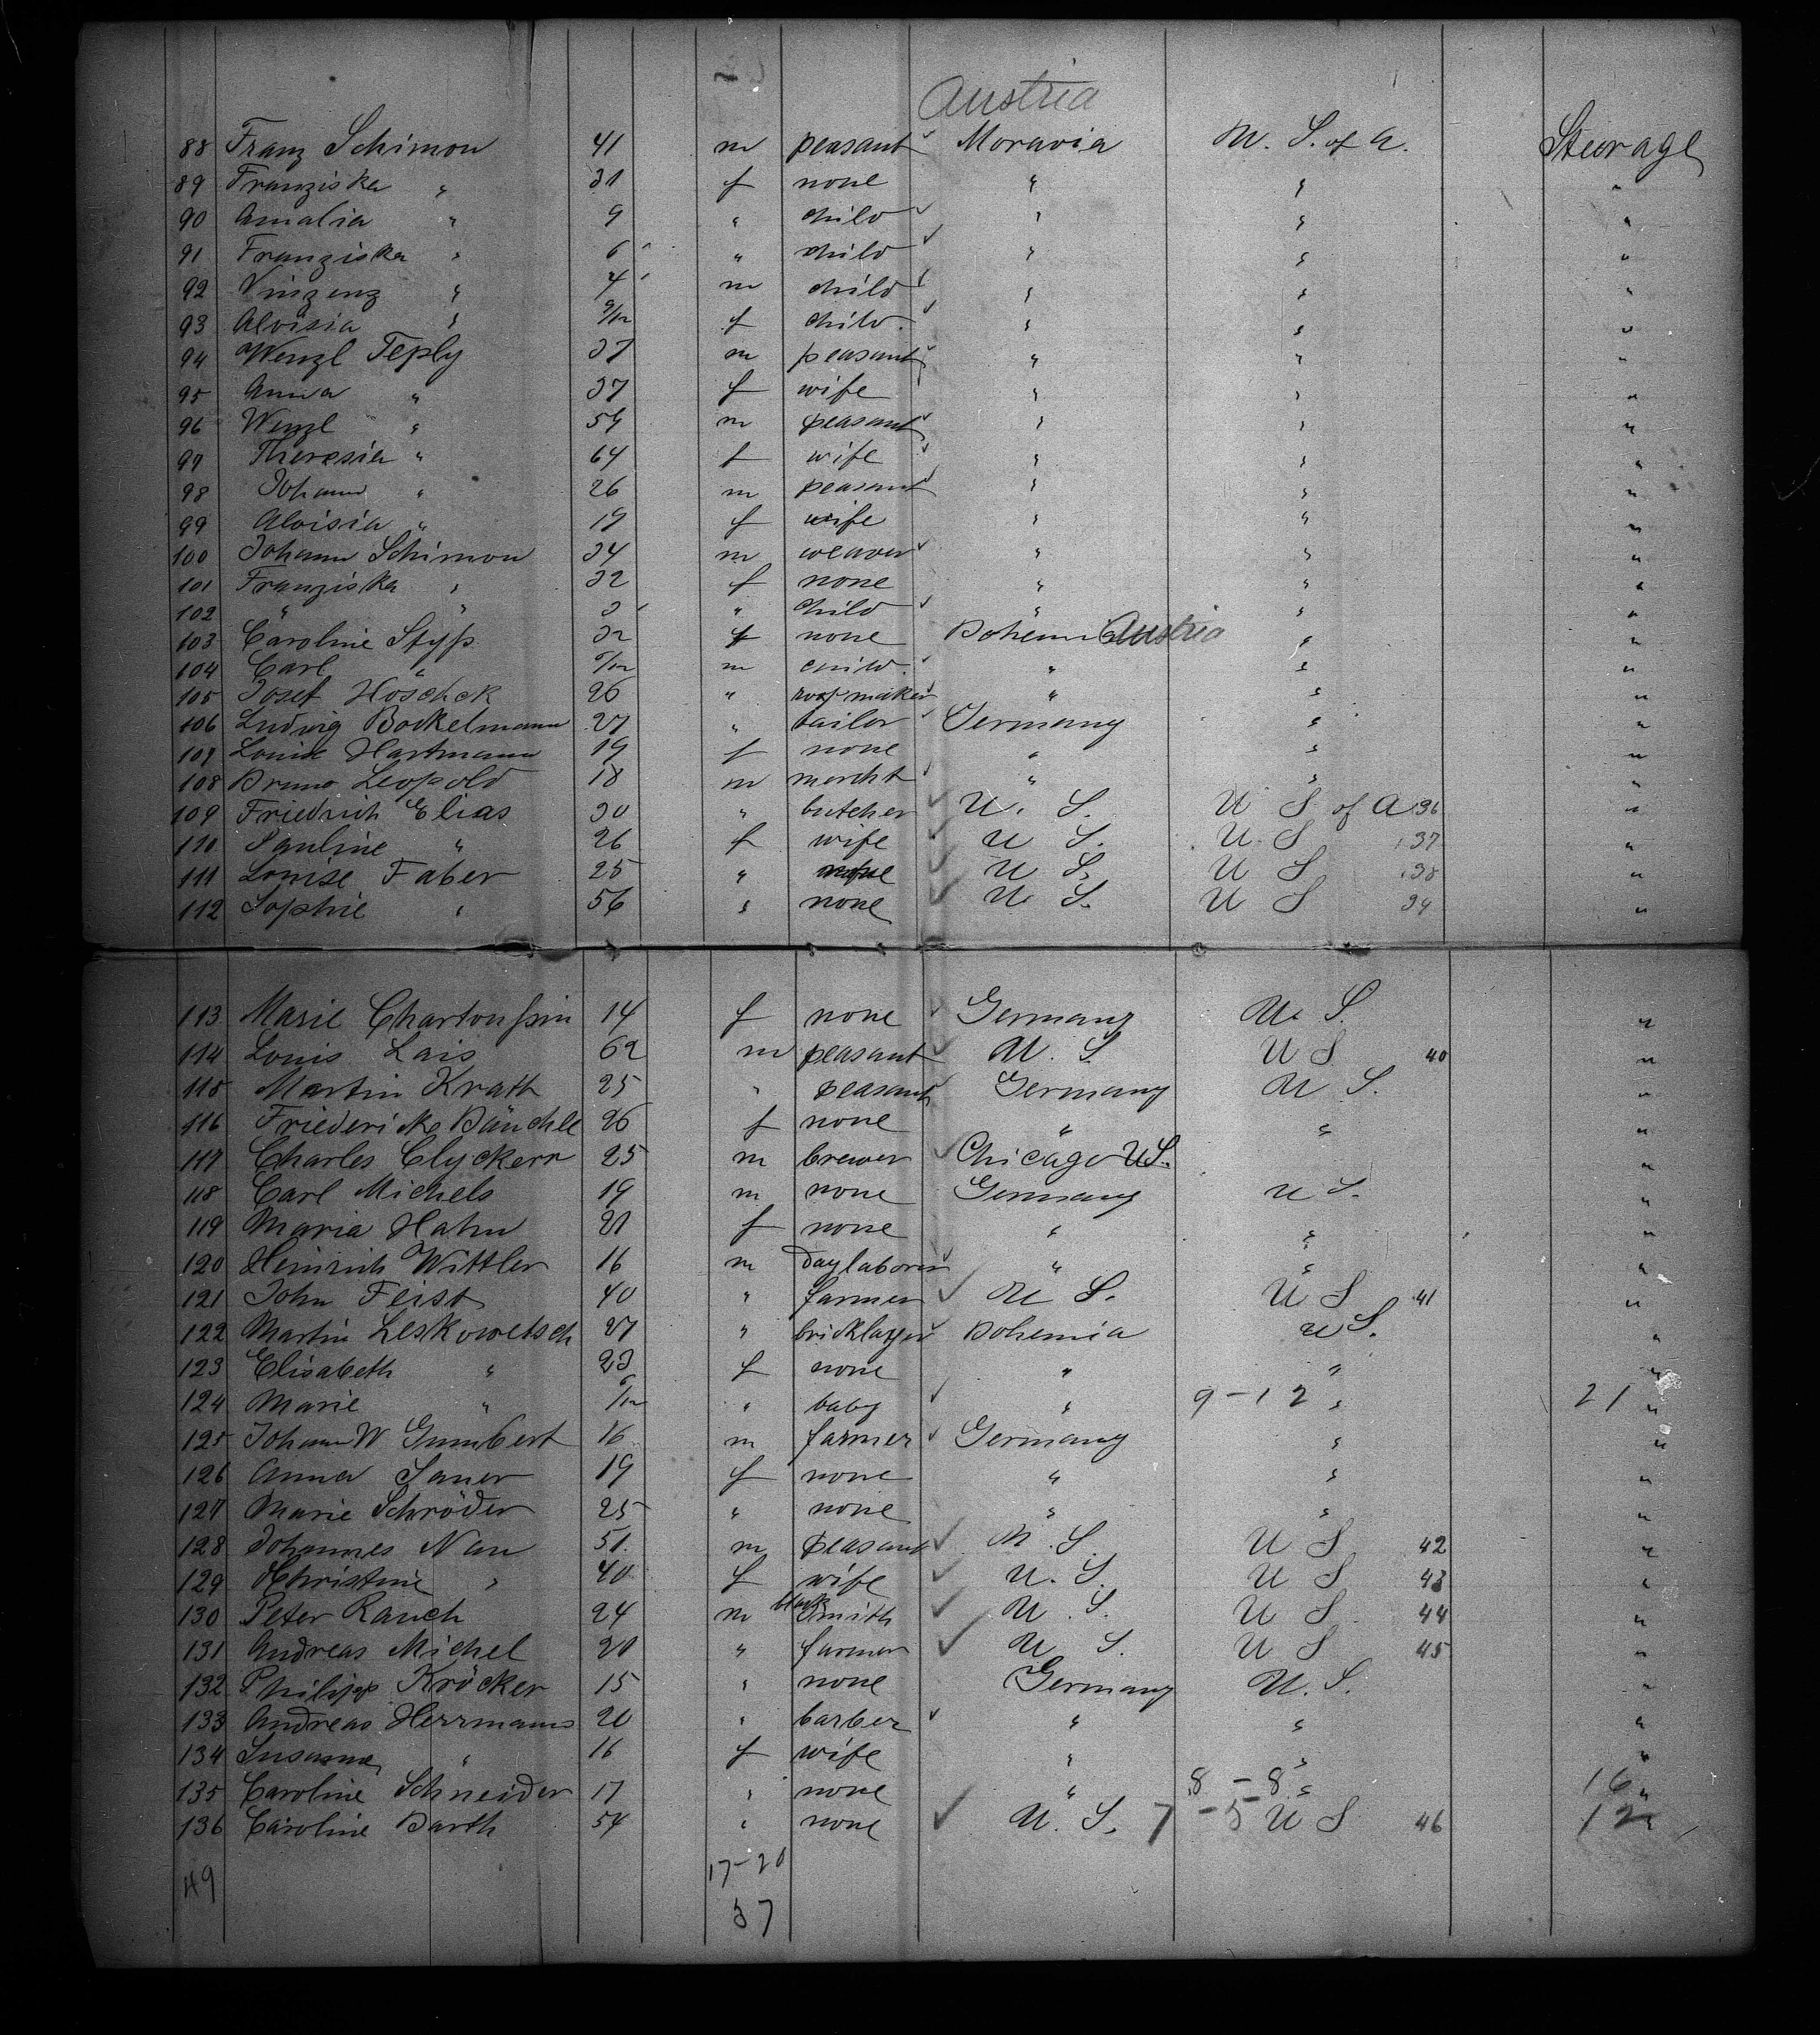 Austria
88 Franz Schimon 41 m peasant Moravia U. S. of A. Steerage
89 Franziska " 31 f none " " "
90 Amalia " 9 " child " " "
91 Franziska " 6 " child " " "
92 Vinzenz " 4 m child " " "
93 Aloisia " 9/12 f child. " " "
94 Wenzl Teply 37 m peasant " " "
95 Anna " 37 f wife " " "
96 Wenzl " 59 m peasant " " "
97 Theresia " 64 f wife " " "
98 Johann " 26 m peasant " " "
99 Aloisia " 19 f wife " " "
100 Johann Schimon 34 m weaver " " "
101 Franziska " 32 f none " " "
102 " " 3 " child " " "
103 Caroline 32 f none Bohemia Austria " "
104 Carl " /12 m child. " " "
105 Josef Hoschek 26 " maker " " "
106 Ludwig Bockelmann 27 " tailor Germany " "
107 Louise Hartmann 19 f none " " "
108 Bruno Leopold 18 m mercht " " "
109 Friedrich Elias 30 " butcher U. S. U S of A 36 "
110 Pauline " 26 f wife U S. U. S 37 "
111 Louise Faber 25 " none U S. U S 38 "
112 Sophie " 56 " none U. S. U S 39 "
113 Marie 14 f none Germany U. S. "
114 Louis Lais 62 m peasant U. S U S 40 "
115 Martin Krath 25 " peasant Germany U S. "
116 Friederike Bäuchle 26 f none " " "
117 Charles Clyckerr 25 m brewer Chicago US. "
118 Carl Michels 19 m none Germany U S. "
119 Maria Hahn 21 f none " " "
120 Heinrich Wittler 16 m daylaborer " " "
121 John Feist 40 " farmer U S. U S 41 "
122 Martin Leskowetsch 27 " bricklayer Bohemia U S. "
123 Elisabeth " 23 f none " " "
124 Marie " /12 " baby " 9-12 " 21 "
125 Johann W Gumbert 16 m farmer Germany " "
126 Anna Sauer 19 f none " " "
127 Marie Schröder 25 " none " " "
128 Johannes Nau 51. m peasant U. S. U S 42 "
129 Christine " 40 f wife U. S. U S 43 "
130 Peter Rauch 24 m black Smith U. S. U S 44 "
131 Andreas Michel 20 " farmer U S. U S 45 "
132 Philipp Kröcker 15 " none Germany U. S. "
133 Andreas Herrmann 20 " barber " " "
134 Susanna " 16 f wife " " "
135 Caroline Schneider 17 " none " 8-8 " 16 "
136 Caroline Barth 54 " none U. S. 7-5 U S 46 12 "
49 17-20
37